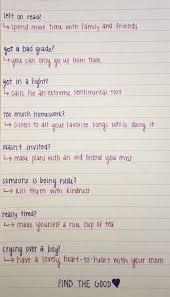 left on read?
↳ spend more time with family and friends
got a bad grade?
↳ you can only go up from there
got in a fight?
↳ calls for an extreme, sentimental text
too much homework?
↳ listen to all your favorite songs while doing it
wasn't invited?
↳ make plans with an old friend you miss
someone is being rude?
↳ kill them with kindness
really tired?
↳ make yourself a nice cup of tea
crying over a boy?
↳ have a lovely heart-to heart with your mom
FIND THE GOOD♥